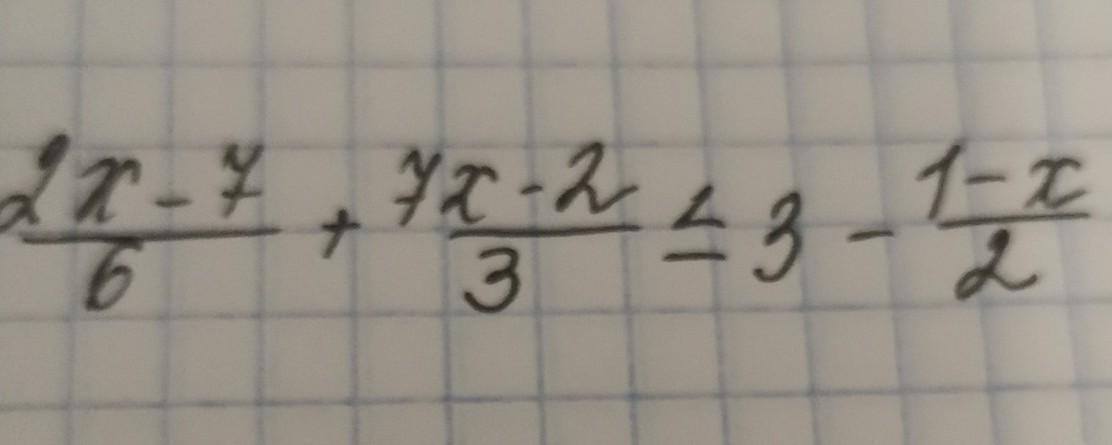 (2x-7)/6 + (7x-2)/3 ≤ 3 - (1-x)/2